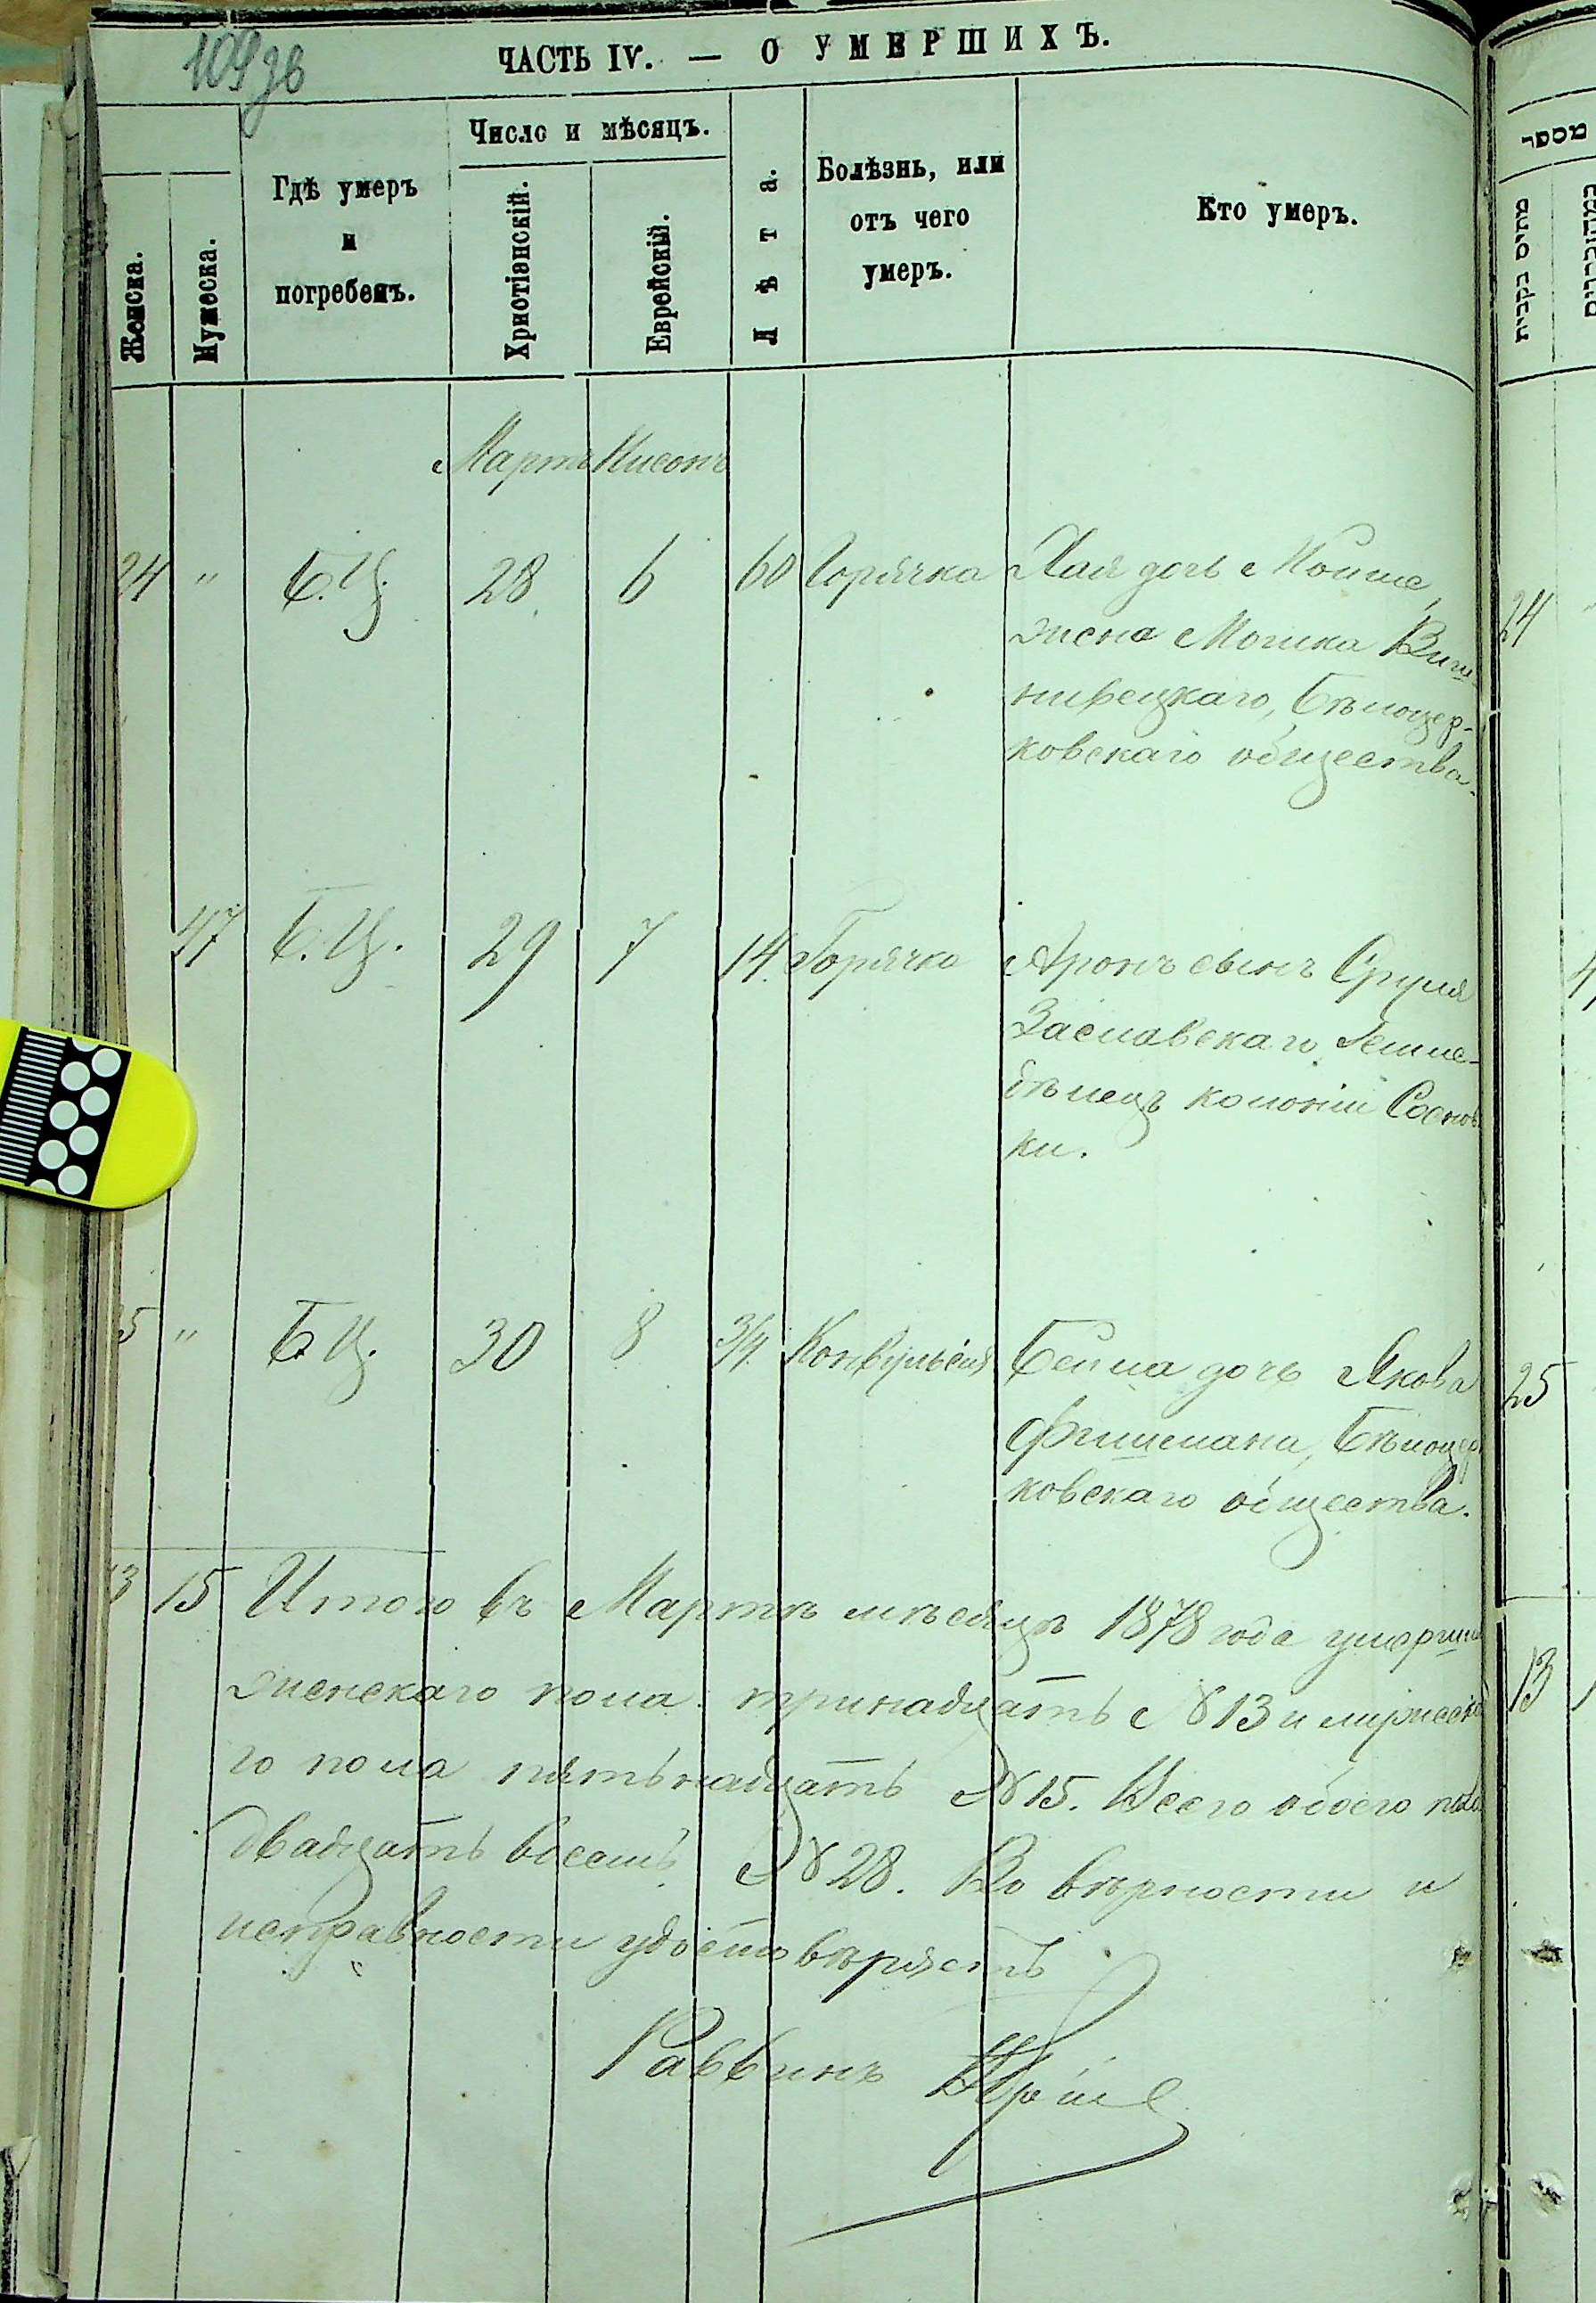 109 зв
ЧАСТЬ IV. — О УМЕРШИХЪ.
Женска.
Мужеска.
Гдѣ умеръ
и
погребенъ.
Число и мѣсяцъ.
Христіанскій.
Еврейскій.
Лѣта.
Болѣзнь, или
отъ чего
умеръ.
Кто умеръ.
מספר
Мартъ Нисонъ
24 " Б.Ц. 28 6 60 Горячка Хая дочь Мошка,
жена Мошка Виш-
нивецкаго, Бѣлоцер-
ковскаго общества.
24
47 Б.Ц. 29 7 14 Горячка Аронъ сынъ Сруля
Заславскаго Земле-
дѣлецъ колоніи Соснов
ки.
25 " Б.Ц. 30 8 3/4 Конвульсія Бейла дочь Якова
Фишмана, Бѣлоцер
ковскаго общества.
25
13 15 Итого въ Мартѣ мѣсяцѣ 1878 года умерши
женскаго пола тринадцать № 13 и мужеска
го пола пятьнадцать № 15. Всего обоего пола
двадцать восемь № 28. Во вѣрности и
исправности удостовѣряетъ
13
Раввинъ